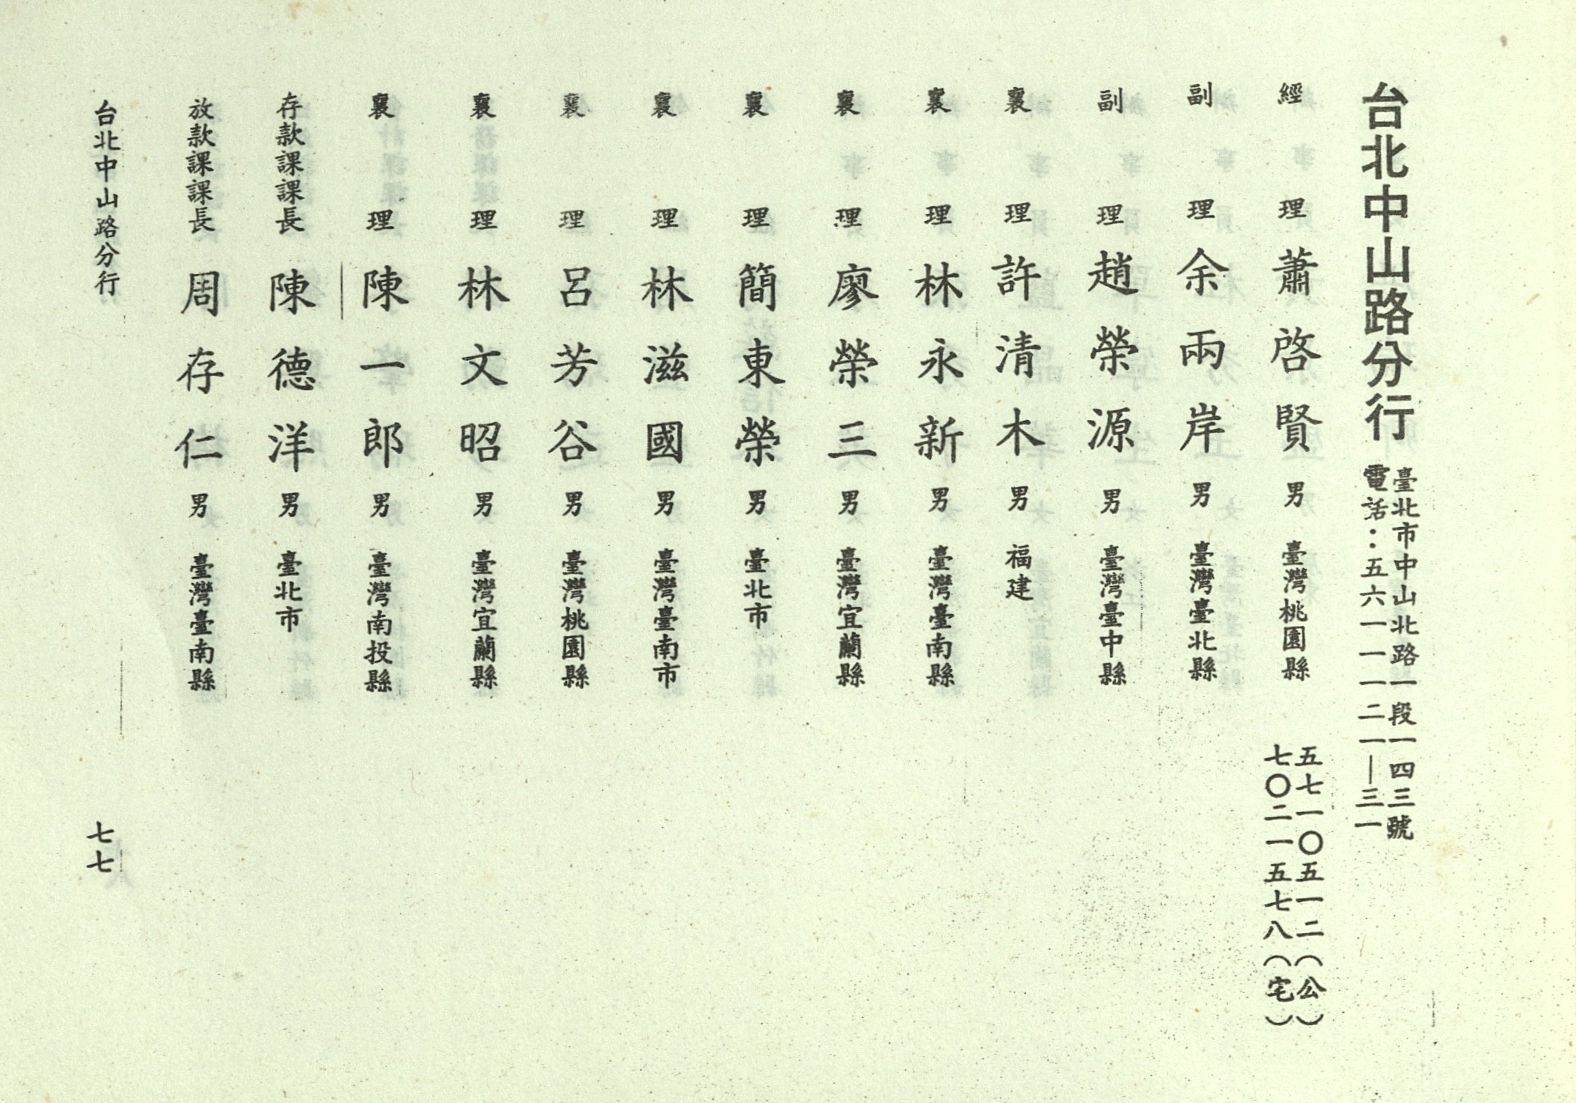 台北中山路分行
臺北市中山北路一段一四三號
電話：五六一一一二一—三一
經理 蕭啓賢 男 臺灣桃園縣
五七一〇五一二（公）
七〇二一五七八（宅）
副理 余兩岸 男 臺灣臺北縣
副理 趙榮源 男 臺灣臺中縣
襄理 許清木 男 福建
襄理 林永新 男 臺灣臺南縣
襄理 廖榮三 男 臺灣宜蘭縣
襄理 簡東榮 男 臺北市
襄理 林滋國 男 臺灣臺南市
襄理 呂芳谷 男 臺灣桃園縣
襄理 林文昭 男 臺灣宜蘭縣
襄理 陳一郎 男 臺灣南投縣
存款課課長 陳德洋 男 臺北市
放款課課長 周存仁 男 臺灣臺南縣
台北中山路分行
七七